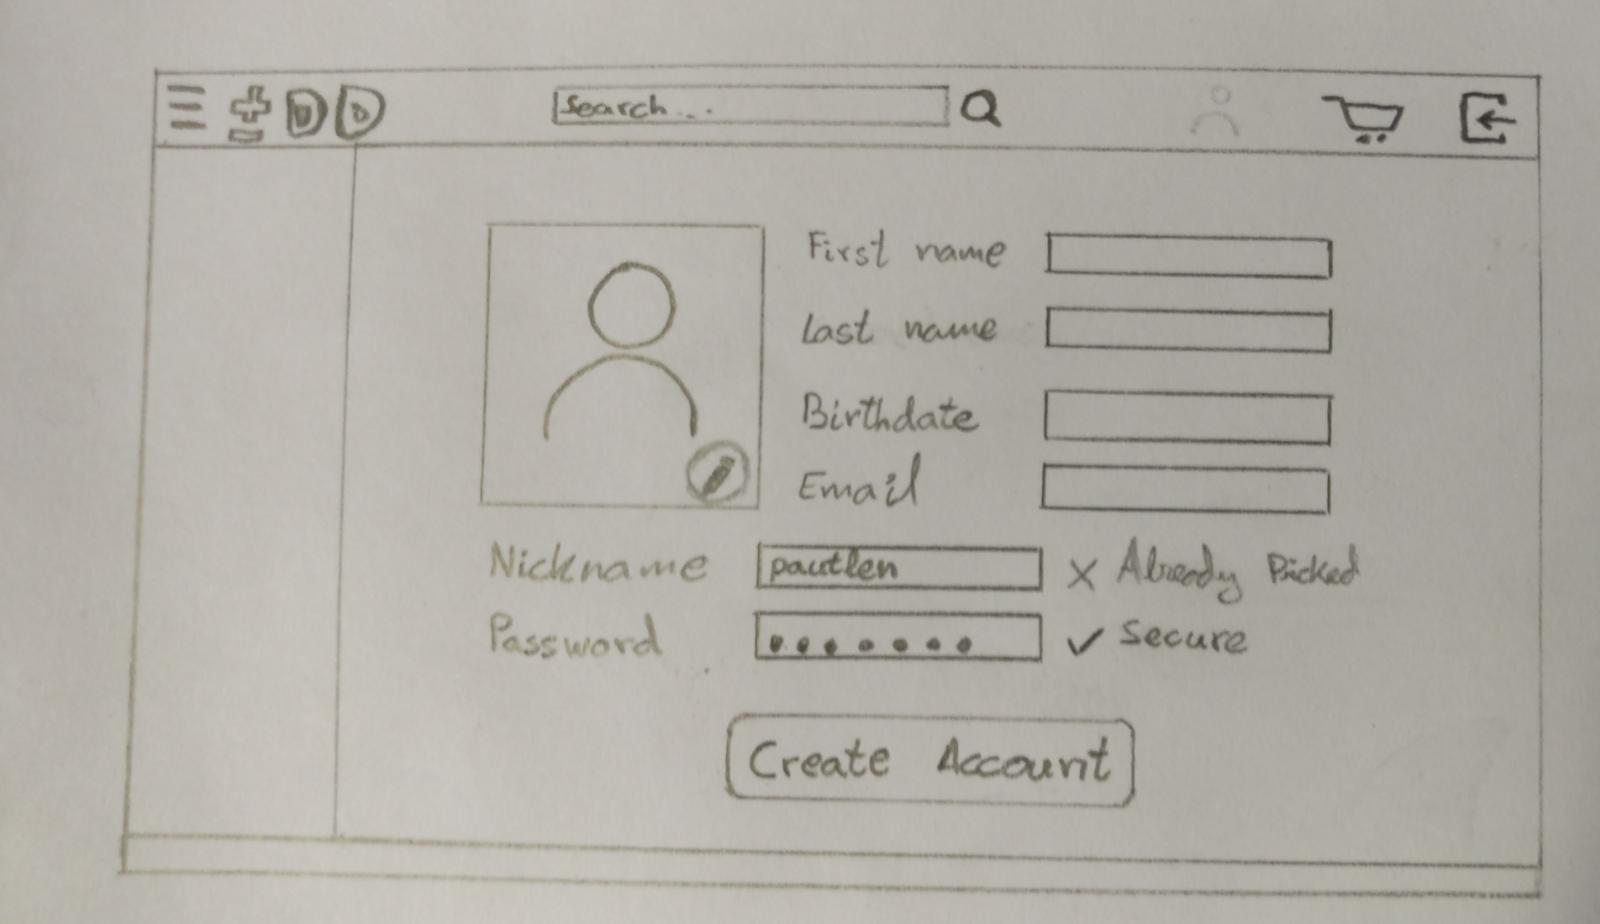 Search...
First name
Last name
Birthdate
Email
Nickname pautlen X Already Picked
Password ••••••• ✓ Secure
Create Account